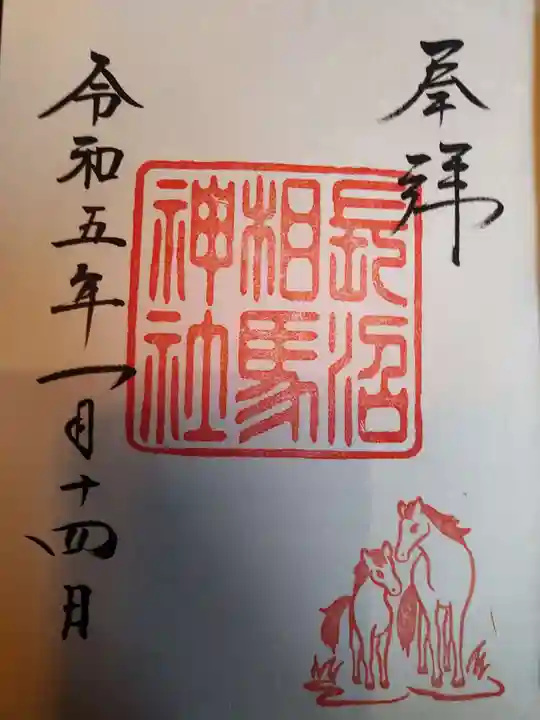 奉拜
長沼
相馬
神社
令和五年一月十四日